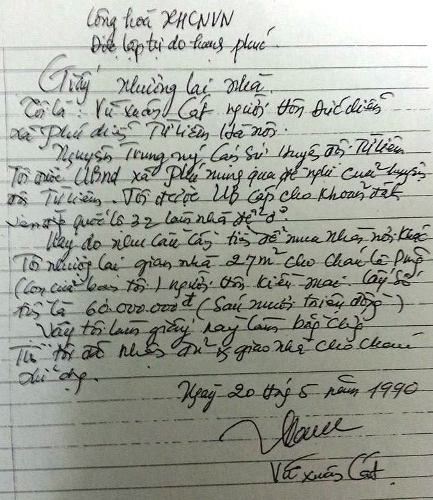 Cộng hoà XHCNVN
Độc lập tự do hạnh phúc.
Giấy nhường lại nhà
Tôi là: Vũ Xuân Cát người thôn Đức diễn
xã phú diễn Từ liêm Hà nội.
Nguyên Trung uý Cán Sự huyện đội Từ liêm
Tôi được UBnd xã phú qua đề nghị của huyện
đội Từ liêm. Tôi được UB cấp cho khoảng đất
ven quốc lộ 32 làm nhà để ở
Nay do nhu cầu cần tiền để mua nhà nơi khác
Tôi nhường lại gian nhà 27m² cho cháu là
(con của bạn tôi) người thôn kiều mai. Lấy số
tiền là 60.000.000đ (Sáu mươi triệu đồng)
Vậy tôi làm giấy này làm bằng chứng
Tôi đã nhận đủ giao nhà cho cháu
sử dụng.
Ngày 20 tháng 5 năm 1990
Vũ Xuân Cát